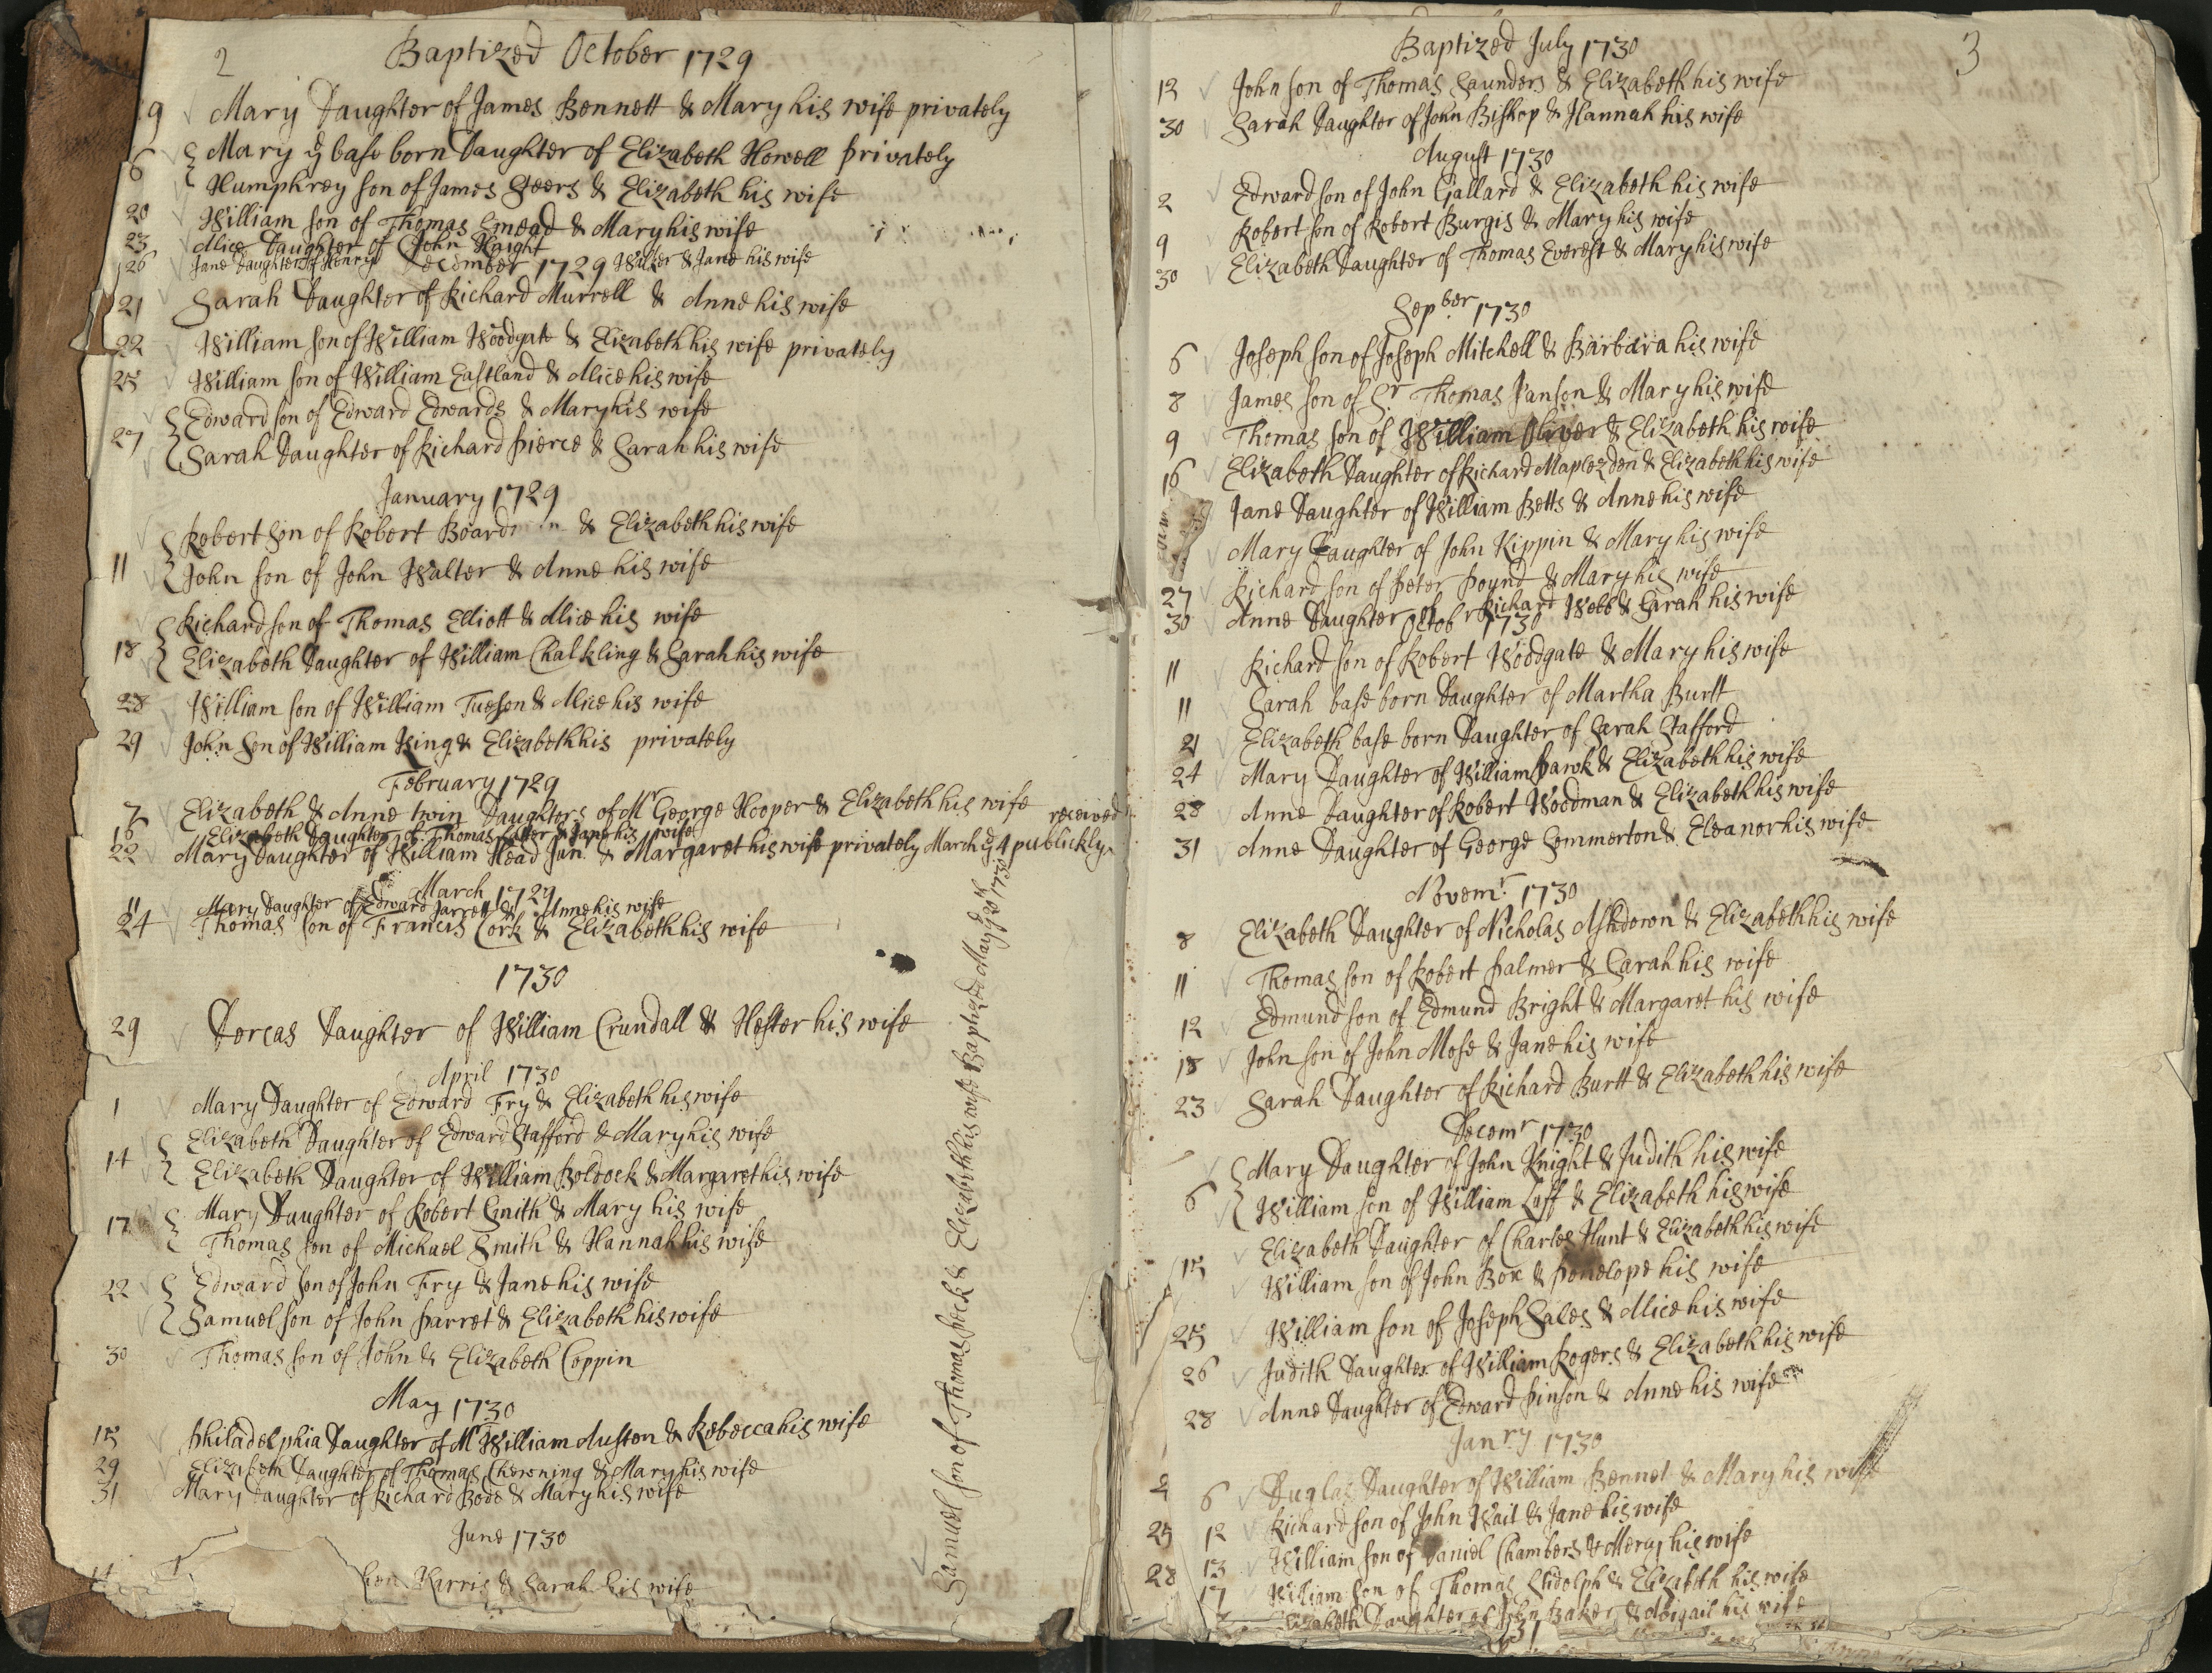 2
Baptized October 1729
9 Mary Daughter of James Bennett & Mary his wife privately
6 Mary ye base born Daughter of Elizabeth Howell privately
Humphrey son of James Steers & Elizabeth his wife
20 William son of Thomas Smead & Mary his wife
23 Alice Daughter of John Haight
26 Jane Daughter of Henry Walter & Jane his wife
December 1729
21 Sarah Daughter of Richard Murrell & Anne his wife
22 William son of William Woodgate & Elizabeth his wife privately
25 William son of William Eastland & Alice his wife
Edward son of Edward Edwards & Mary his wife
27 Sarah Daughter of Richard Pierce & Sarah his wife
January 1729
Robert Son of Robert Board & Elizabeth his wife
11 John son of John Walter & Anne his wife
Richard son of Thomas Elliott & Alice his wife
18 Elizabeth Daughter of William Chalkling & Sarah his wife
28 William son of William Tueson & Alice his wife
29 John Son of William King & Elizabeth his privately
February 1729
7 Elizabeth & Anne twin Daughters of Mr George Hooper & Elizabeth his wife received
16 Elizabeth Daughter of Thomas & Jane his wife
22 Mary Daughter of William Head Jun. & Margaret his wife privately March ye 4 publickly
March 1729
11 Mary Daughter of Edward Jarrett & Anne his wife
24 Thomas son of Francis Cork & Elizabeth his wife
1730
29 Dorcas Daughter of William Crundall & Hester his wife
April 1730
1 Mary Daughter of Edward Fry & Elizabeth his wife
14 Elizabeth Daughter of Edward Stafford & Mary his wife
Elizabeth Daughter of William Boldock & Margaret his wife
17 Mary Daughter of Robert Smith & Mary his wife
Thomas son of Michael Smith & Hannah his wife
22 Edward son of John Fry & Jane his wife
Samuel son of John Parret & Elizabeth his wife
30 Thomas son of John & Elizabeth Coppin
May 1730
15 Philadelphia Daughter of Mr William Austen & Rebecca his wife
29 Elizabeth Daughter of Thomas Chewning & Mary his wife
31 Mary Daughter of Richard Bode & Mary his wife
June 1730
Harris & Sarah his wife
Samuel son of Thomas Peck & Elizabeth his wife Baptized May ye 20th 1730
3
Baptized July 1730
12 John son of Thomas Saunders & Elizabeth his wife
30 Sarah Daughter of John Bishop & Hannah his wife
August 1730
2 Edward son of John Gallard & Elizabeth his wife
9 Robert son of Robert Burgis & Mary his wife
30 Elizabeth Daughter of Thomas Everest & Mary his wife
Sepber 1730
6 Joseph son of Joseph Mitchell & Barbara his wife
8 James son of Sr Thomas Janson & Mary his wife
9 Thomas son of William Oliver & Elizabeth his wife
16 Elizabeth Daughter of Richard Maplezden & Elizabeth his wife
Jane Daughter of William Betts & Anne his wife
Mary Daughter of John Kippin & Mary his wife
27 Richard son of Peter Pound & Mary his wife
30 Anne Daughter of Richard Webb & Sarah his wife
Octobr 1730
11 Richard son of Robert Woodgate & Mary his wife
11 Sarah base born Daughter of Martha Burtt
21 Elizabeth base born Daughter of Sarah Stafford
24 Mary Daughter of William Pawk & Elizabeth his wife
28 Anne Daughter of Robert Woodman & Elizabeth his wife
31 Anne Daughter of George Sommerton & Eleanor his wife
Novemr 1730
8 Elizabeth Daughter of Nicholas Ashdown & Elizabeth his wife
11 Thomas son of Robert Palmer & Sarah his wife
12 Edmund son of Edmund Bright & Margaret his wife
18 John son of John Mose & Jane his wife
23 Sarah Daughter of Richard Burtt & Elizabeth his wife
Decemr 1730
Mary Daughter of John Knight & Judith his wife
6 William son of William Laff & Elizabeth his wife
Elizabeth Daughter of Charles Hunt & Elizabeth his wife
15 William son of John Box & Penelope his wife
25 William son of Joseph Sales & Alice his wife
26 Judith Daughter of William Rogers & Elizabeth his wife
28 Anne Daughter of Edward Pinson & Anne his wife
Janry 1730
2 6 Duglas Daughter of William Bennet & Mary his wife
25 12 Richard son of John Wait & Jane his wife
28 13 William son of Daniel Chambers & Mercy his wife
17 William son of Thomas Stidolph & Elizabeth his wife
Elizabeth Daughter of John Baker & Abigail his wife
31